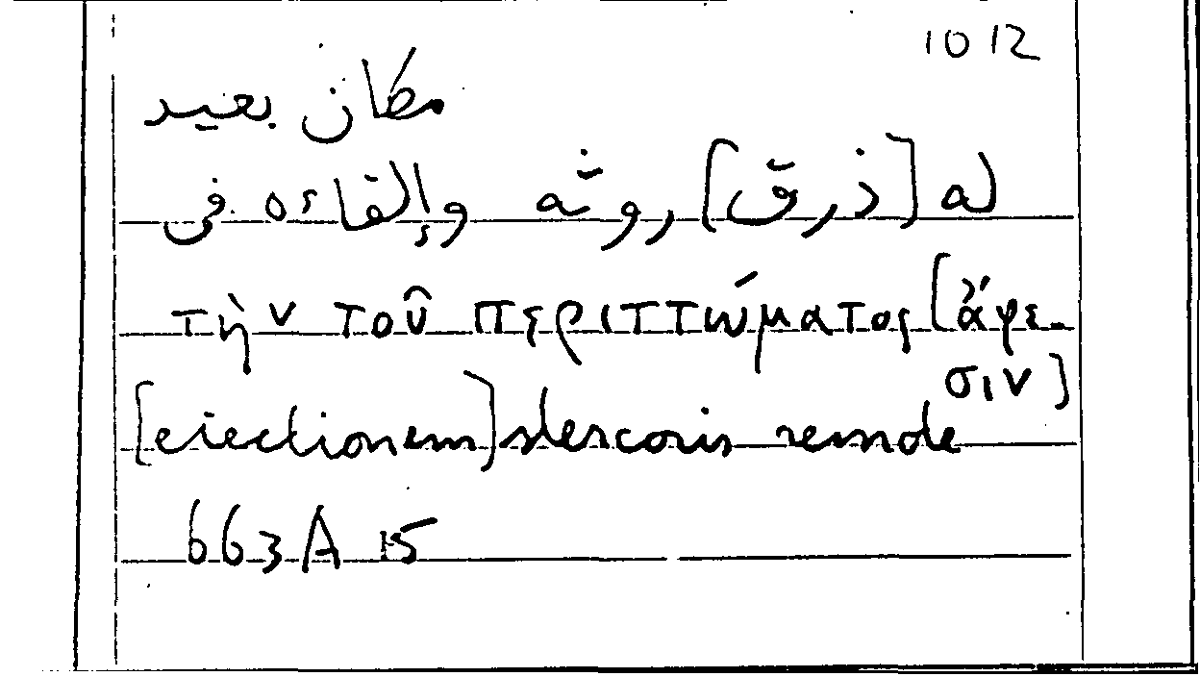 1012
مكان بعيد
له [ذرق] روثه وإلقاءه فى
τὴν τοῦ περιττώματος [ἄφε-
σιν]
[eiectionem] stercoris remde
663A 15